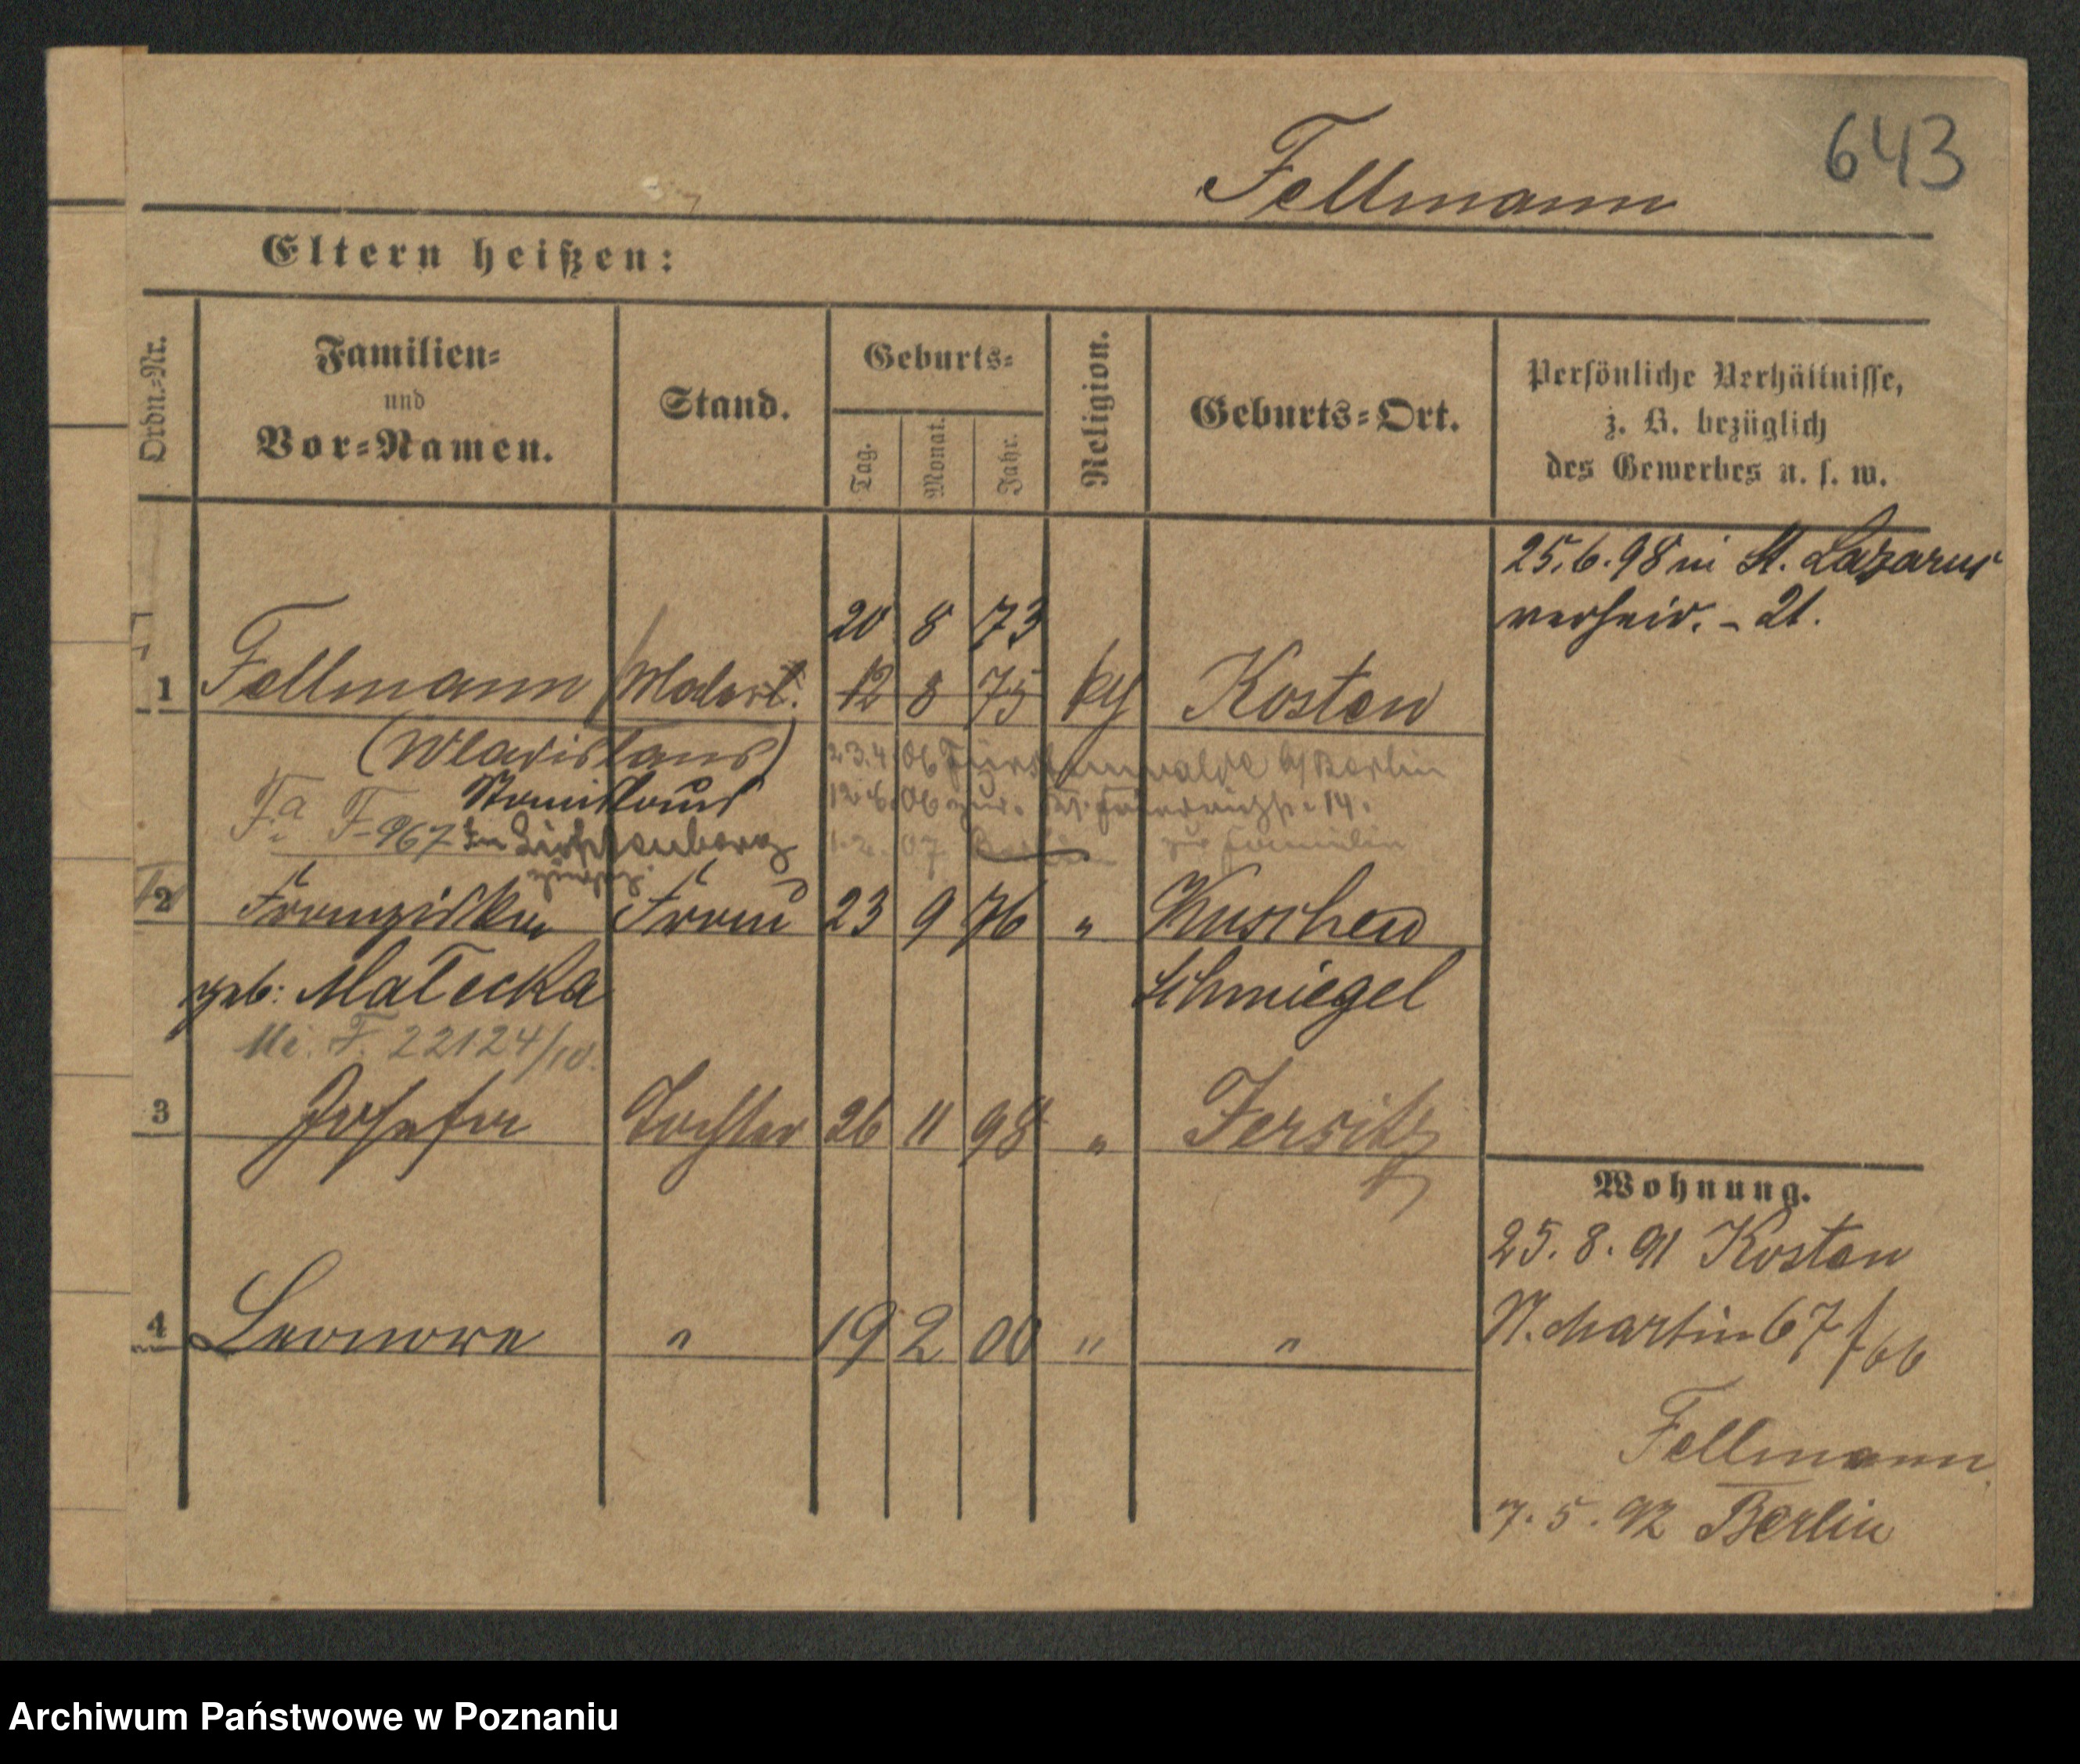 643
Fellmann
Eltern heißen:
Ordn.-Nr.
Familien-
und
Vor-Namen.
Stand.
Geburts-
Tag.
Monat.
Jahr.
Religion.
Geburts-Ort.
Persönliche Verhältnisse,
z. B. bezüglich
des Gewerbes u. s. w.
25.6.98 in St. Lazarus
verheir. - 21.
20 8 73
1 Fellmann 12 8 75 kg Kosten
(Wladislaus)
Stanislaus
23.4.06 Fürstenwalde b/Berlin
Fa F 967
14.
1.2.07 Familie
2 Franziska Frau 23 9 76 " Kuschen
geb: Małecka Schmiegel
F. 22124/10.
3 Josefa Tochter 26 11 98 " Jersitz
4 Leonore " 19 2 00 " "
Wohnung.
25.8.91 Kosten
St. Martin 67 f/66
Fellmann
7.5.92 Berlin
Archiwum Państwowe w Poznaniu